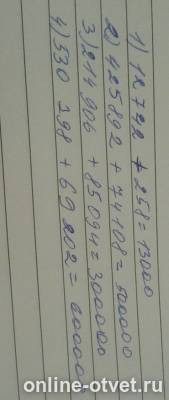 1) 12 742 + 258 = 13000
2) 425892 + 74108 = 500000
3) 214 906 + 85094 = 300000
4) 530 798 + 69 202 = 600000
online-otvet.ru